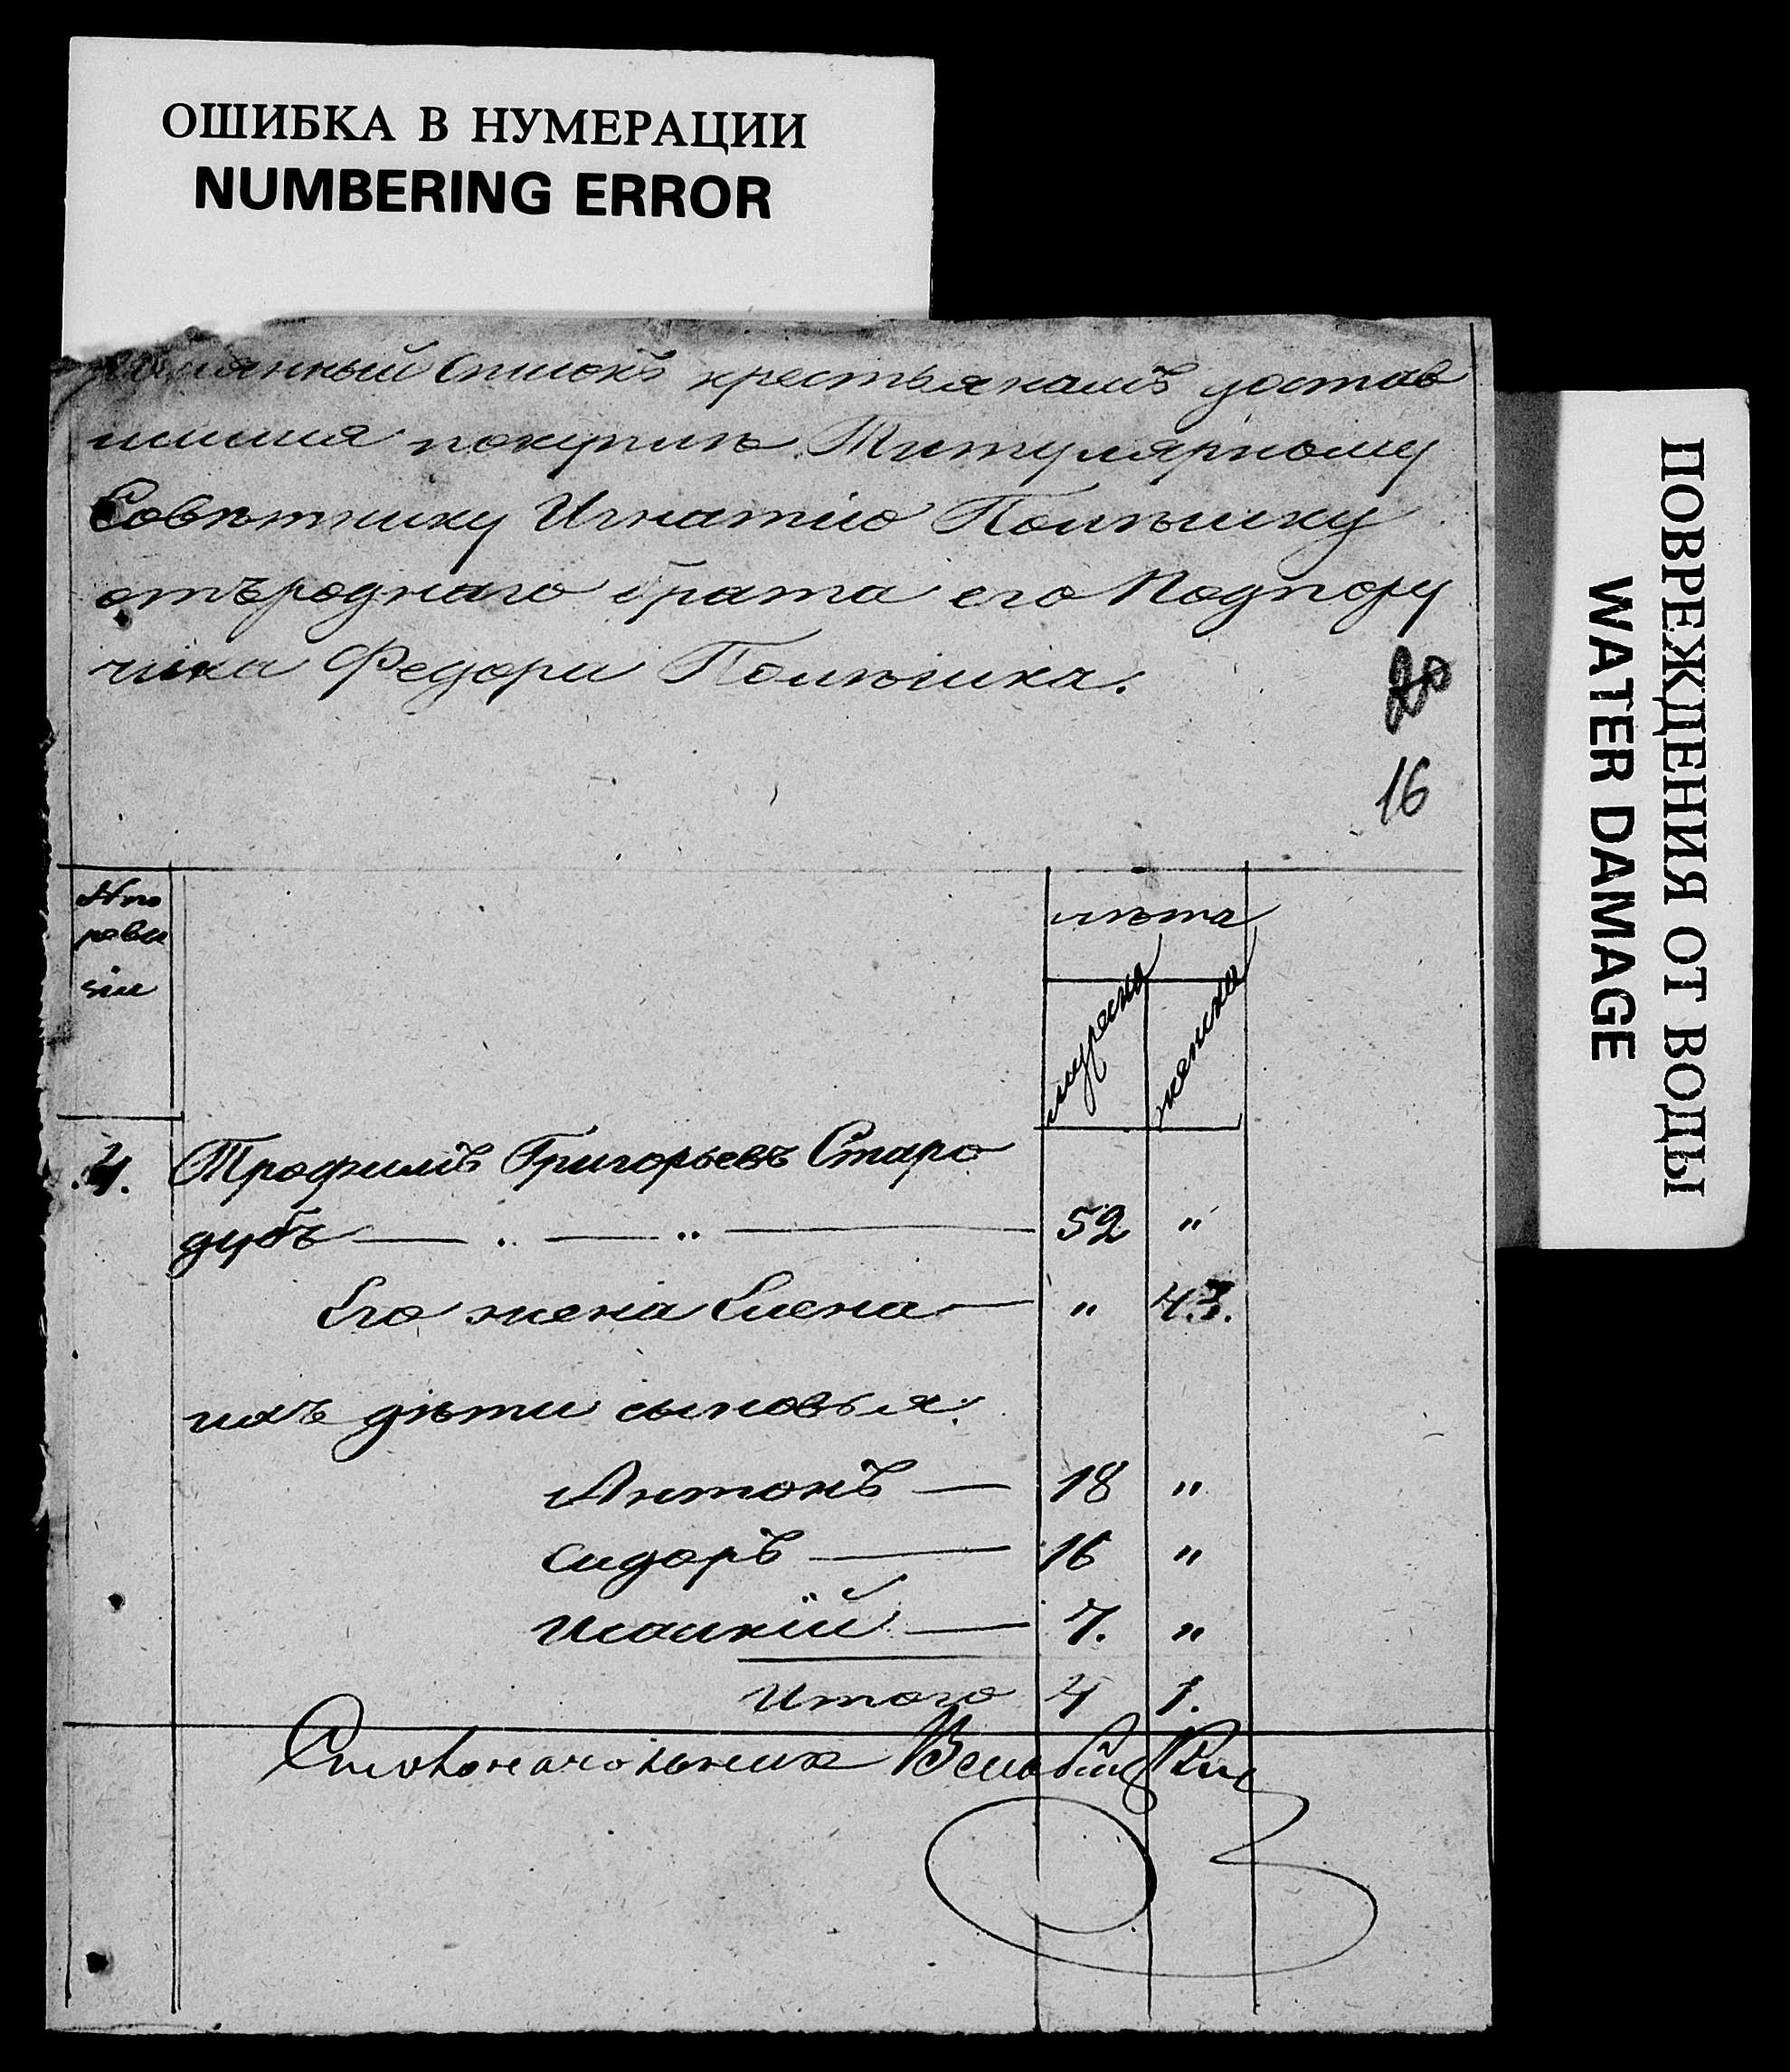 ОШИБКА В НУМЕРАЦИИ
NUMBERING ERROR
ПОВРЕЖДЕНИЯ ОТ ВОДЫ
WATER DAMAGE
Именный Списокъ крестьянамъ достав
шимся покупкѣ Титулярному
Совѣтнику Игнатію
отъ роднаго брата его Подпору
чика Федора
20
16
№ по
реви
зіи
лѣта
мужеска
женска
4. Трофимъ Григорьевъ Старо
дубъ — . — „ — 52 „
Его жена Елена — „ 43.
ихъ дѣти сыновья:
Антонъ — 18 „
Сидоръ — 16 „
7. „
Итого 4 1.
Столоначальникъ